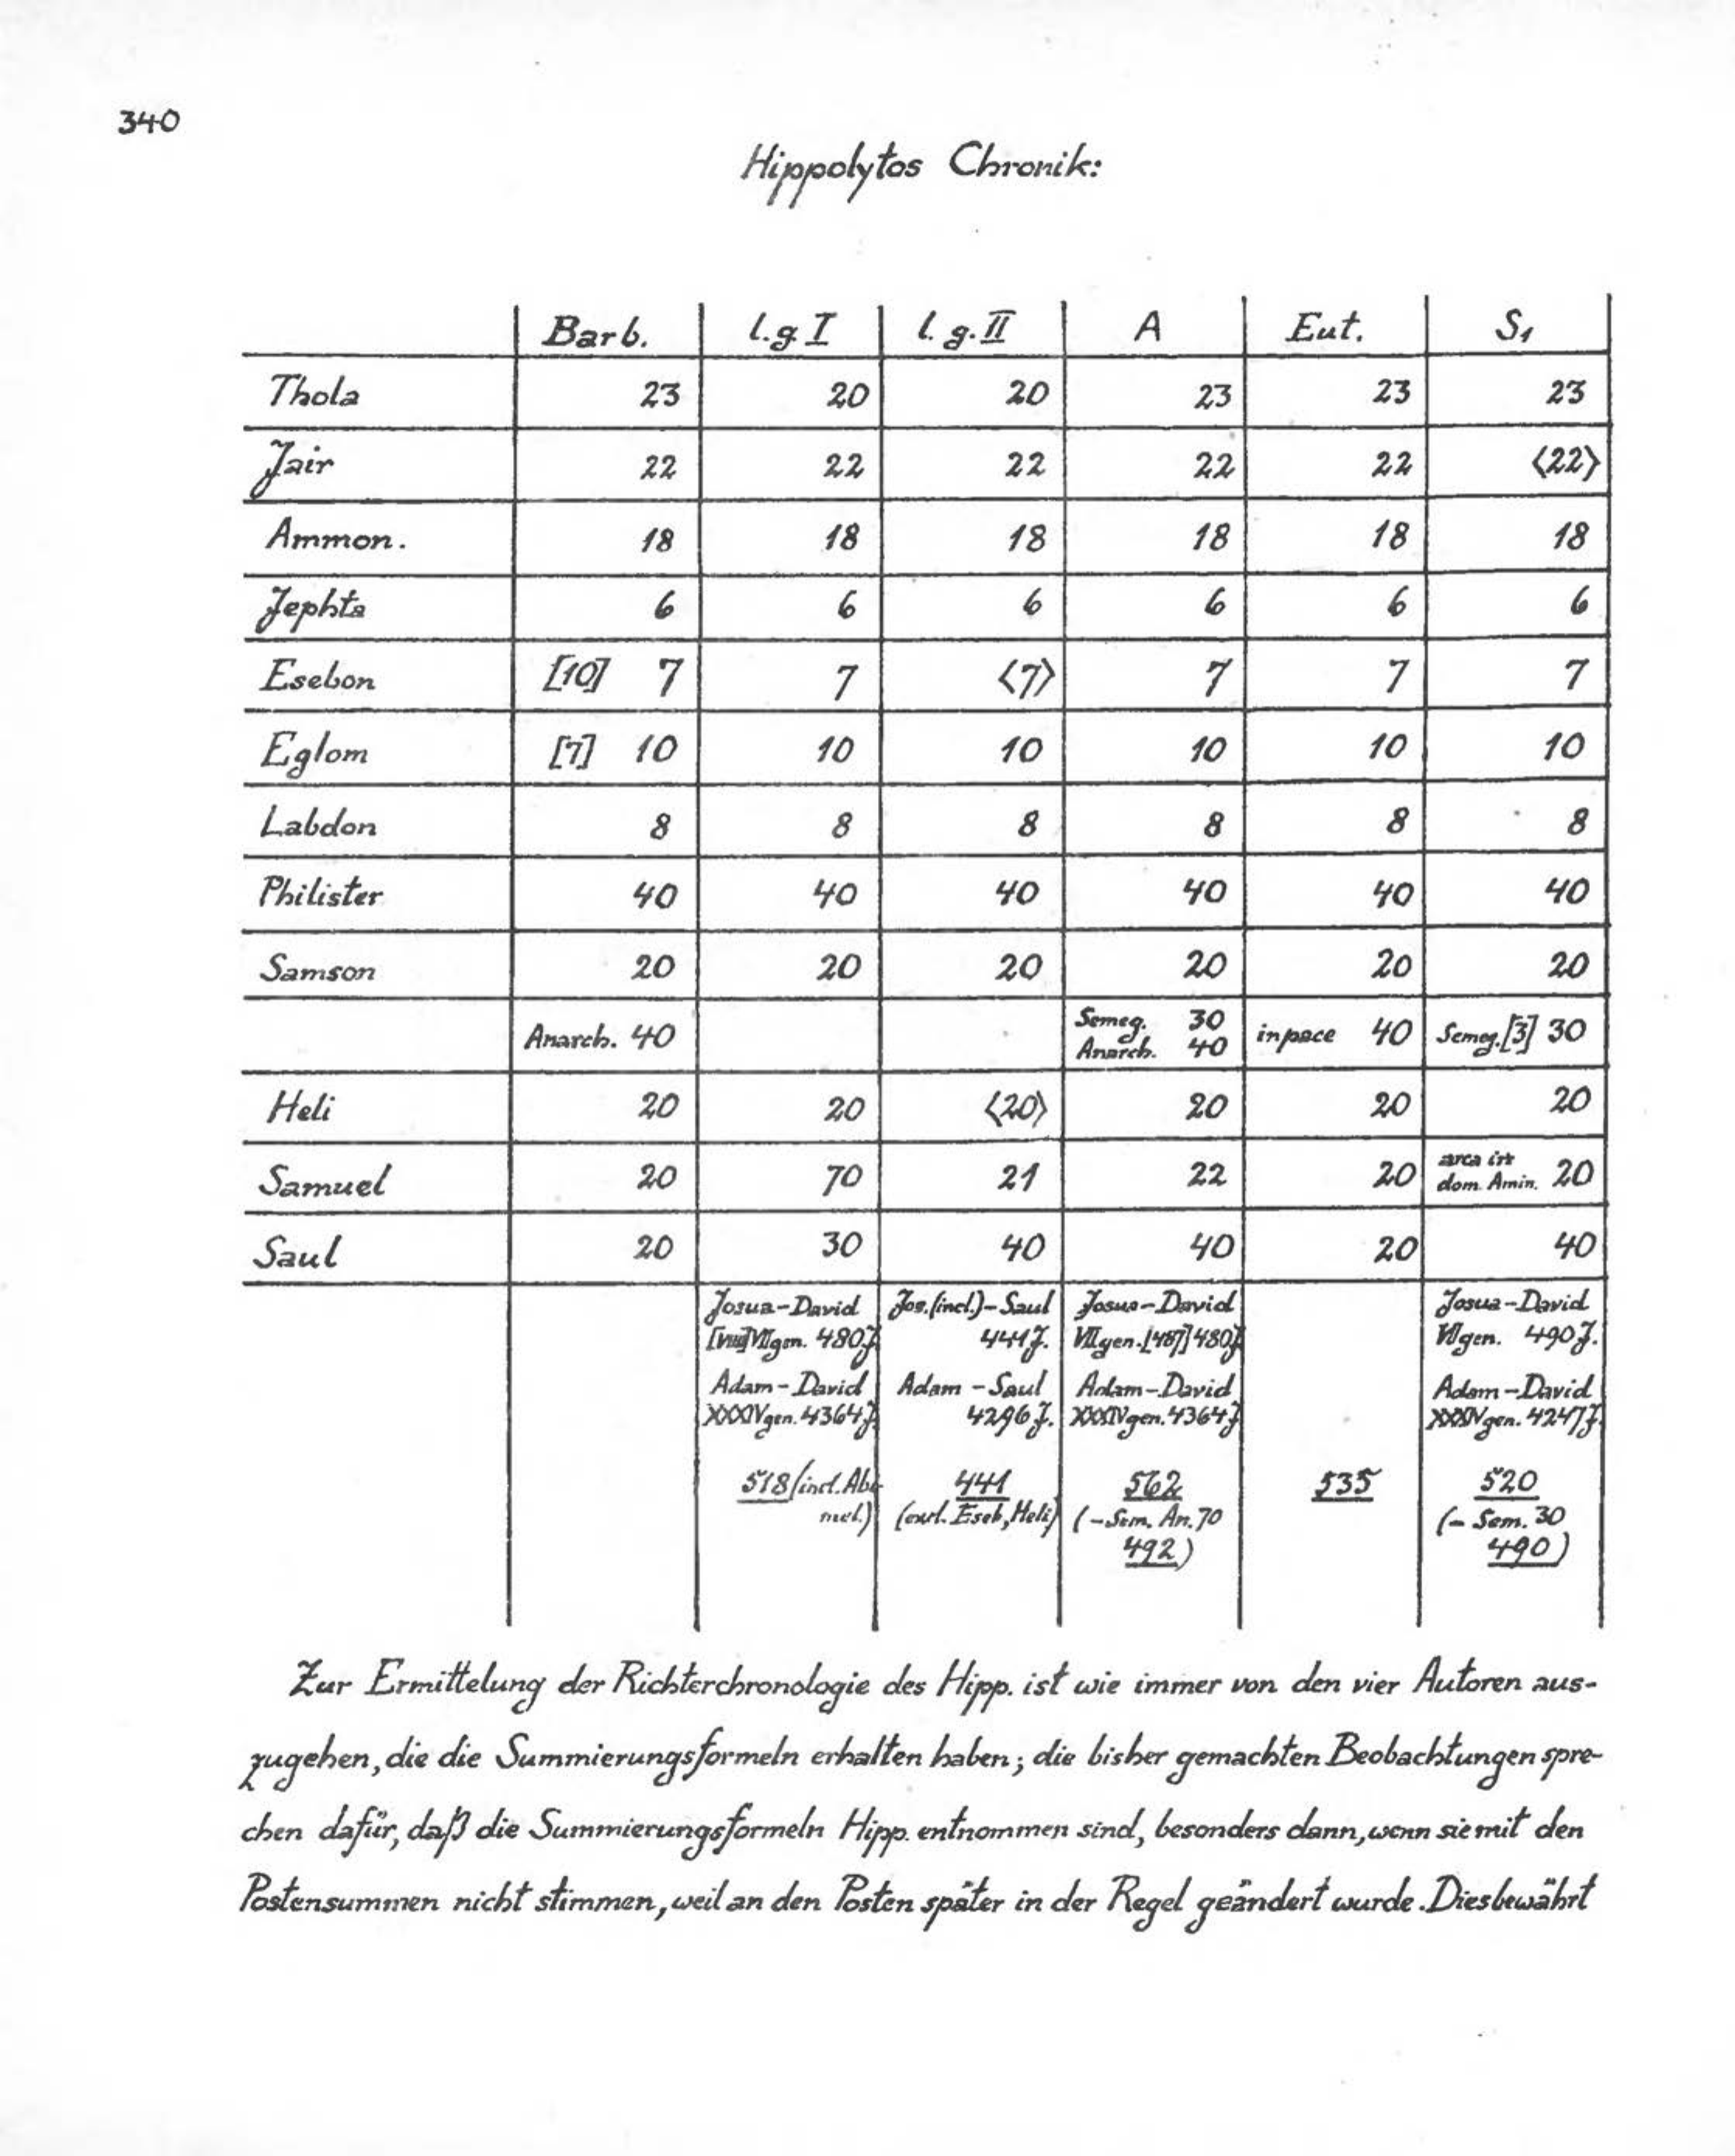 340
Hippolytos Chronik:
Barb. l.g I l.g.II A Eut. S1
Thola 23 20 20 23 23 23
Jair 22 22 22 22 22 ⟨22⟩
Ammon. 18 18 18 18 18 18
Jephta 6 6 6 6 6 6
Esebon [10] 7 7 ⟨7⟩ 7 7 7
Eglom [7] 10 10 10 10 10 10
Labdon 8 8 8 8 8 8
Philister 40 40 40 40 40 40
Samson 20 20 20 20 20 20
Anarch. 40 Semeg. 30 Anarch. 40 in pace 40 Semeg. [3] 30
Heli 20 20 ⟨20⟩ 20 20 20
Samuel 20 70 21 22 20 arca in dom. Amin. 20
Saul 20 30 40 40 20 40
Josua-David Jos.(incl.)-Saul Josua-David Josua-David
VIIgen. 480J. 441J. VIIgen. [487] 480J. VIgen. 490J.
Adam-David Adam-Saul Adam-David Adam-David
XXXIVgen. 4364J. 4296J. XXXIVgen. 4364J. XXXIVgen. 4247J.
518 (incl. Abi- 441 562 535 520
mel.) (exel. Eseb, Heli) (-Sem. An. 70 (- Sem. 30
492) 490)
Zur Ermittelung der Richterchronologie des Hipp. ist wie immer von den vier Autoren aus-
zugehen, die die Summierungsformeln erhalten haben; die bisher gemachten Beobachtungen spre-
chen dafür, daß die Summierungsformeln Hipp. entnommen sind, besonders dann, wenn sie mit den
Postensummen nicht stimmen, weil an den Posten später in der Regel geändert wurde. Dies bewährt